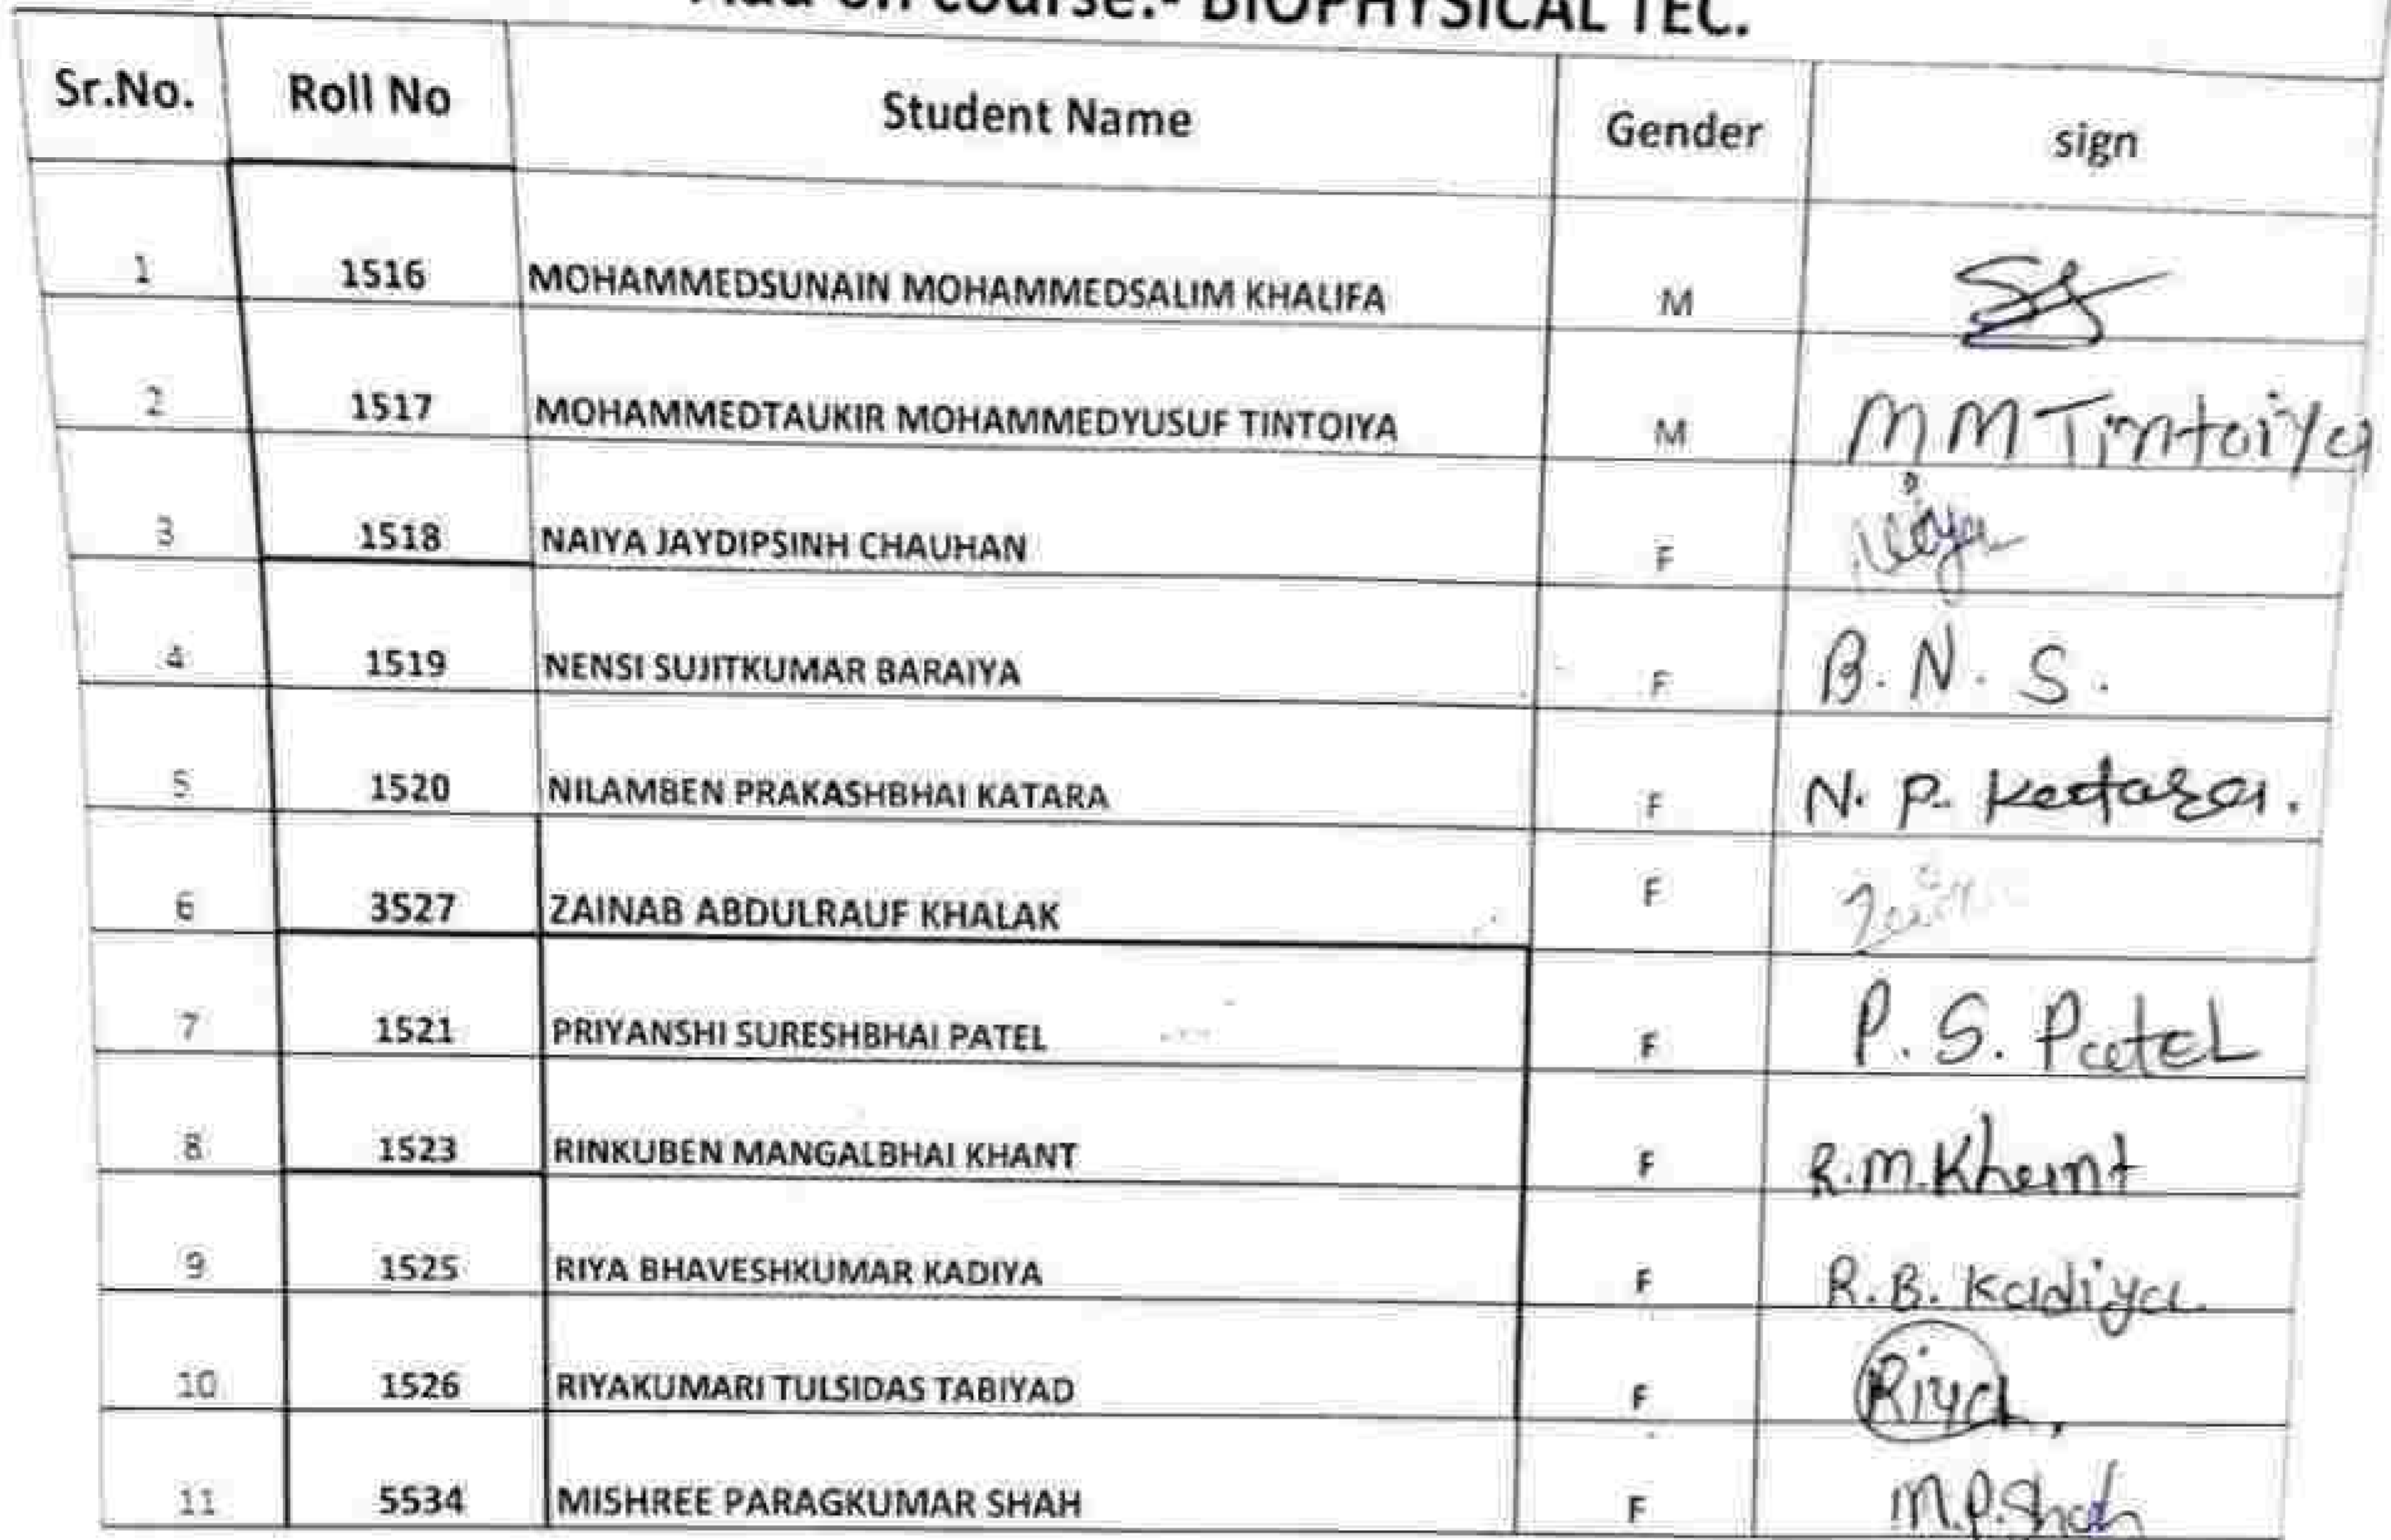 on course:- BIOPHYSICAL TEC.
Sr.No. Roll No Student Name Gender sign
1 1516 MOHAMMEDSUNAIN MOHAMMEDSALIM KHALIFA M
2 1517 MOHAMMEDTAUKIR MOHAMMEDYUSUF TINTOIYA M MM Tintoiya
3 1518 NAIYA JAYDIPSINH CHAUHAN F
4 1519 NENSI SUJITKUMAR BARAIYA F B. N. S.
5 1520 NILAMBEN PRAKASHBHAI KATARA F N. P. Katara.
6 3527 ZAINAB ABDULRAUF KHALAK F
7 1521 PRIYANSHI SURESHBHAI PATEL F P. S. Patel
8 1523 RINKUBEN MANGALBHAI KHANT F R.M.Khant
9 1525 RIYA BHAVESHKUMAR KADIYA F R.B. Kadiya.
10 1526 RIYAKUMARI TULSIDAS TABIYAD F Riya.
11 5534 MISHREE PARAGKUMAR SHAH F M.P.Shah